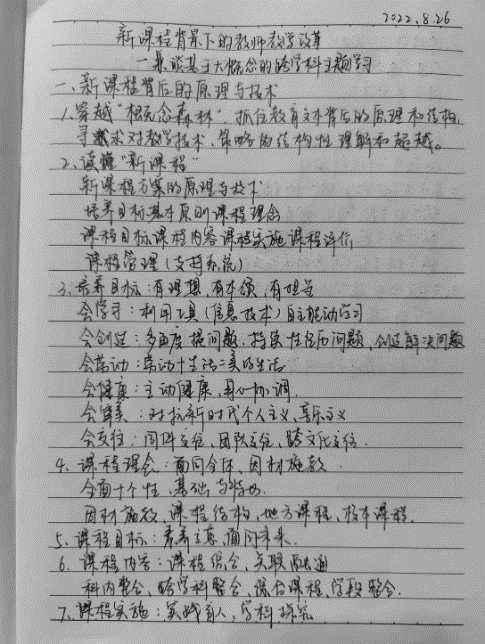 2022.8.26
新课程背景下的教师教学改革
—兼谈基于大概念的跨学科主题学习
一、新课程背后的原理与技术
1.穿越“概念森林”，抓住教育文本背后的原理和结构，
寻求对教学技术、策略的结构性理解和超越。
2、读懂“新课程”
新课程方案的原理与技术
培养目标基本原则课程理念
课程目标课程内容课程实施课程评价
课程管理（支持系统）
3、培养目标：有理想，有本领，有担当
会学习：利用工具（信息技术）自主能动学习
会创造：多角度提问题、持续性问题，创造解决问题
会劳动：劳动+生活=美好生活
会健康：主动健康，身心协调.
会审美：对抗新时代个人主义，享乐主义
会交往：同伴交往，团队交往，跨文化交往.
4、课程理念：面向全体，因材施教.
全面+个性，基础与特长.
因材施教，课程结构，地方课程，校本课程.
5、课程目标：素养立意，面向未来.
6、课程内容：课程综合，关联融通
科内整合，跨学科整合，综合课程，学段整合.
7、课程实施：实践育人，学科探究